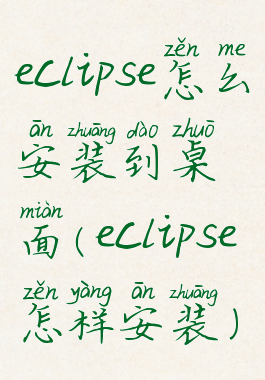 zěn me
eclipse怎么
ān zhuāng dào zhuō
安装到桌
miàn
面(eclipse
zěn yàng ān zhuāng
怎样安装)